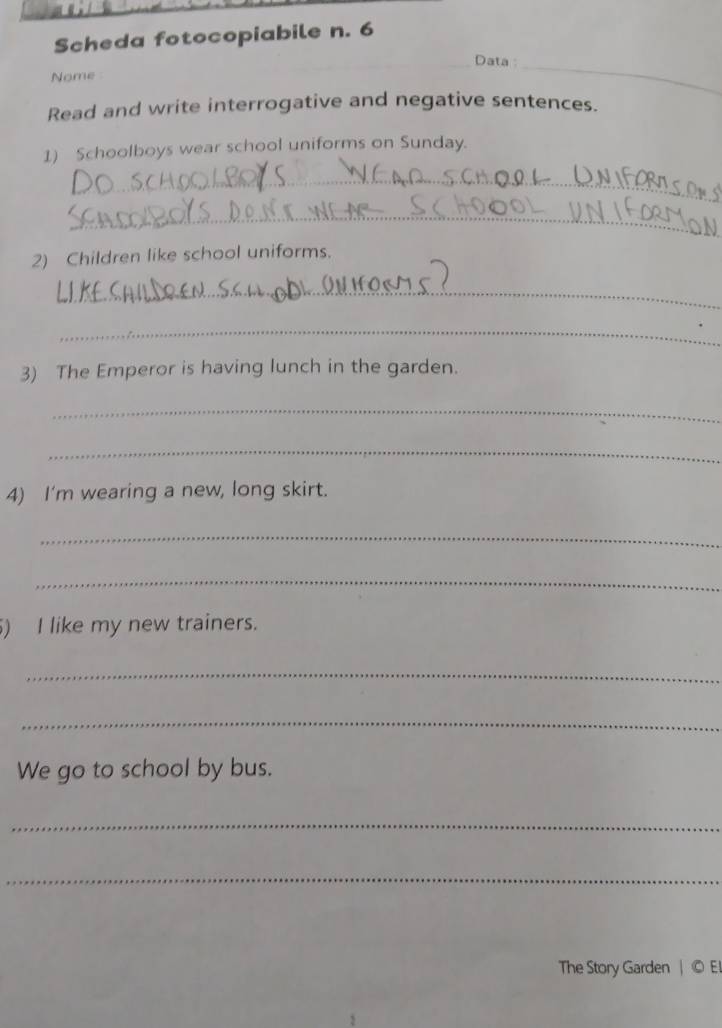 Scheda fotocopiabile n. 6
Data :
Nome :
Read and write interrogative and negative sentences.
1) Schoolboys wear school uniforms on Sunday.
DO SCHOOLBOYS WEAR SCHOOL UNIFORMS ON S
SCHOOLBOYS DON'T WEAR SCHOOOL UNIFORM ON
2) Children like school uniforms.
LIKE CHILDREN SCHOOL UNIFORMS?
3) The Emperor is having lunch in the garden.
4) I'm wearing a new, long skirt.
5) I like my new trainers.
We go to school by bus.
The Story Garden | © El